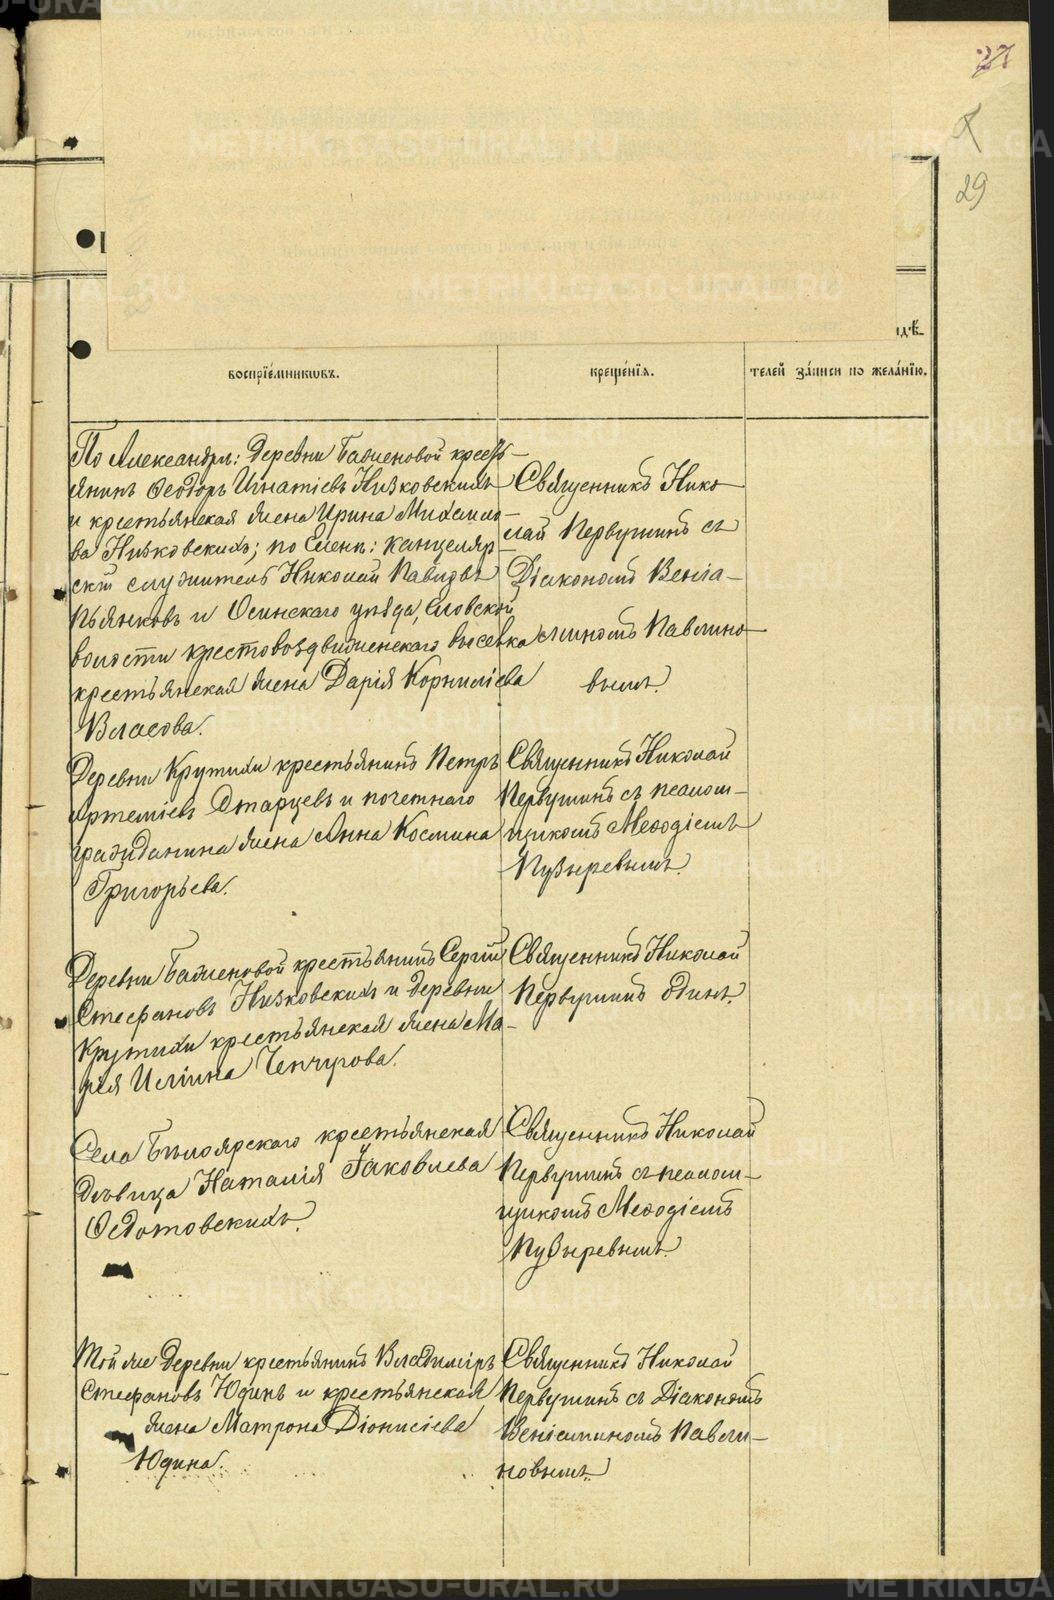 29
воспріе́мникωвъ.
креще́нія.
телей за́писи по жела́нію.
По Александрѣ: деревни Баженовой кресть-
янинъ Ѳеодоръ Игнатіевъ Низковскихъ
и крестьянская жена Ирина Михаило-
ва Низковскихъ; по Еленѣ: канцеляр-
скій служитель Николай Павловъ
Пьянковъ и Осинскаго уѣзда, Еловской
волости крестовоздвиженскаго выселка
крестьянская жена Дарія Корниліева
Власова.
Священникъ Нико-
лай Первушинъ съ
Діакономъ Веніа-
миномъ Павлино-
вымъ.
Деревни Крутихи крестьянинъ Петръ
Артеміевъ Старцевъ и почетнаго
гражданина жена Анна Космина
Григорьева.
Священникъ Николай
Первушинъ съ псалом-
щикомъ Меѳодіемъ
Пузыревымъ.
Деревни Баженовой крестьянинъ Сергій
Стефановъ Низковскихъ и деревни
Крутихи крестьянская жена Ма-
рія Иліина Чепчугова.
Священникъ Николай
Первушинъ одинъ.
Села Бѣлоярскаго крестьянская
дѣвица Наталія Іаковлева
Ѳедотовскихъ.
Священникъ Николай
Первушинъ съ псалом-
щикомъ Меѳодіемъ
Пузыревымъ.
Той же деревни крестьянинъ Владиміръ
Стефановъ Юдинъ и крестьянская
жена Матрона Діонисіева
Юдина.
Священникъ Николай
Первушинъ съ Діакономъ
Веніаминомъ Павли-
новымъ.
METRIKI.GASU-URAL.RU